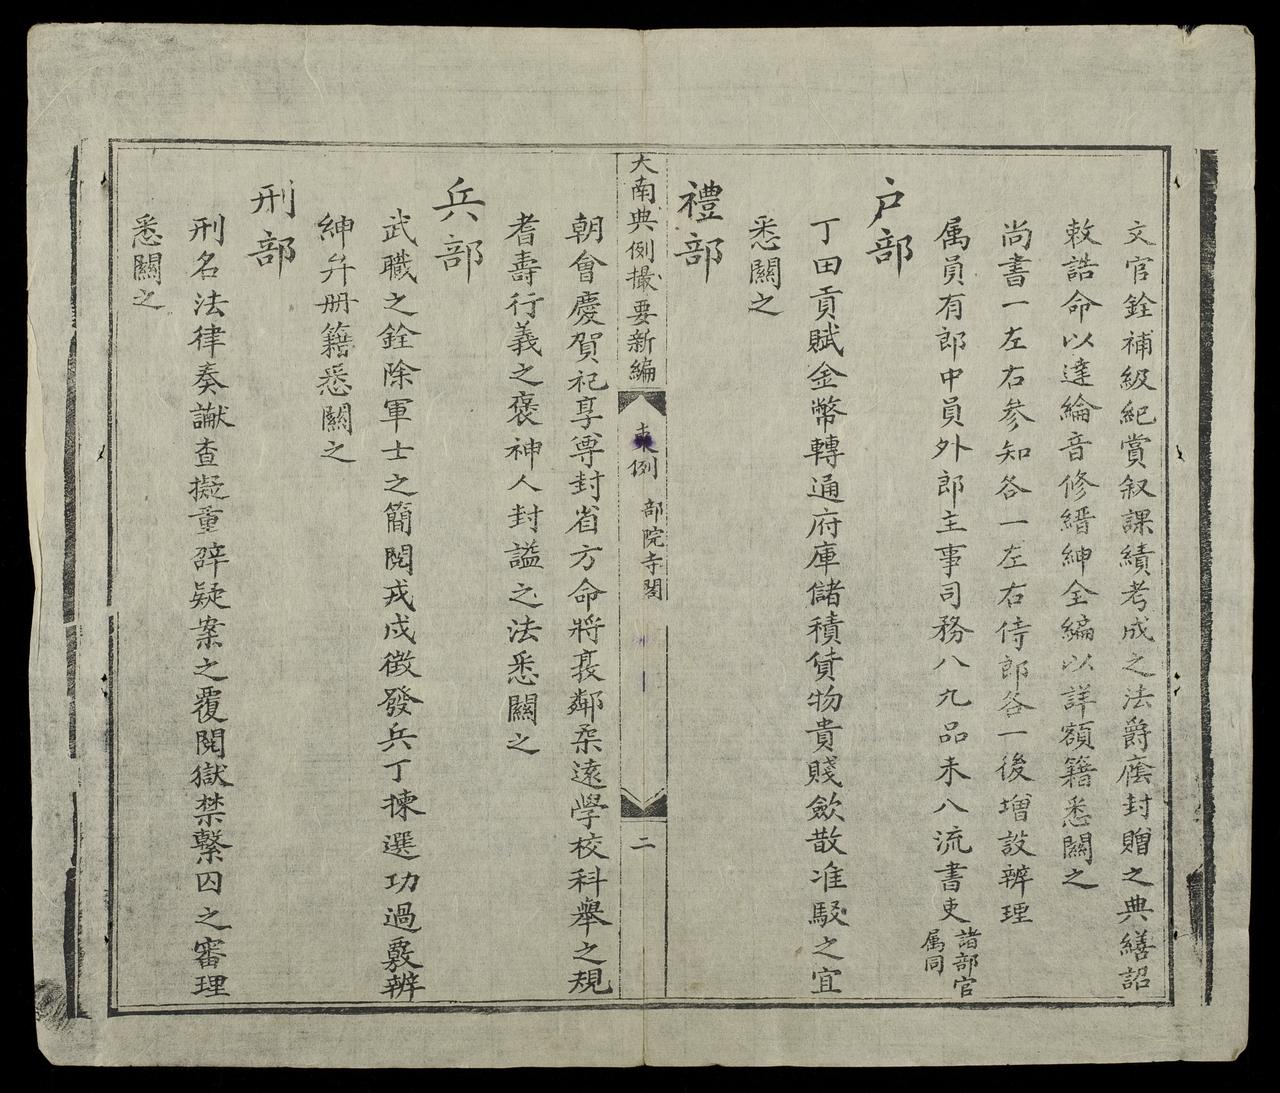 文官銓補級紀賞叙課績考成之法爵廕封贈之典繕詔
敕誥命以達綸音修縉紳全編以詳額籍悉關之
尚書一左右參知各一左右侍郎各一後增設辨理
属員有郎中員外郎主事司務八九品未入流書吏諸部官属同
户部
丁田貢賦金幣轉通府庫儲積貨物貴賤歛散准駁之宜
悉關之
禮部
大南典例撮要新編
例 部院寺閣
二
朝會慶賀祀享尊封省方命將裦鄰柔遠學校科舉之規
耆壽行義之褒神人封謚之法悉關之
兵部
武職之銓除軍士之簡閱戎戍徵發兵丁揀選功過覈辨
紳弁册籍悉關之
刑部
刑名法律奏讞查擬重辟疑案之覆閱獄禁繫囚之審理
悉關之